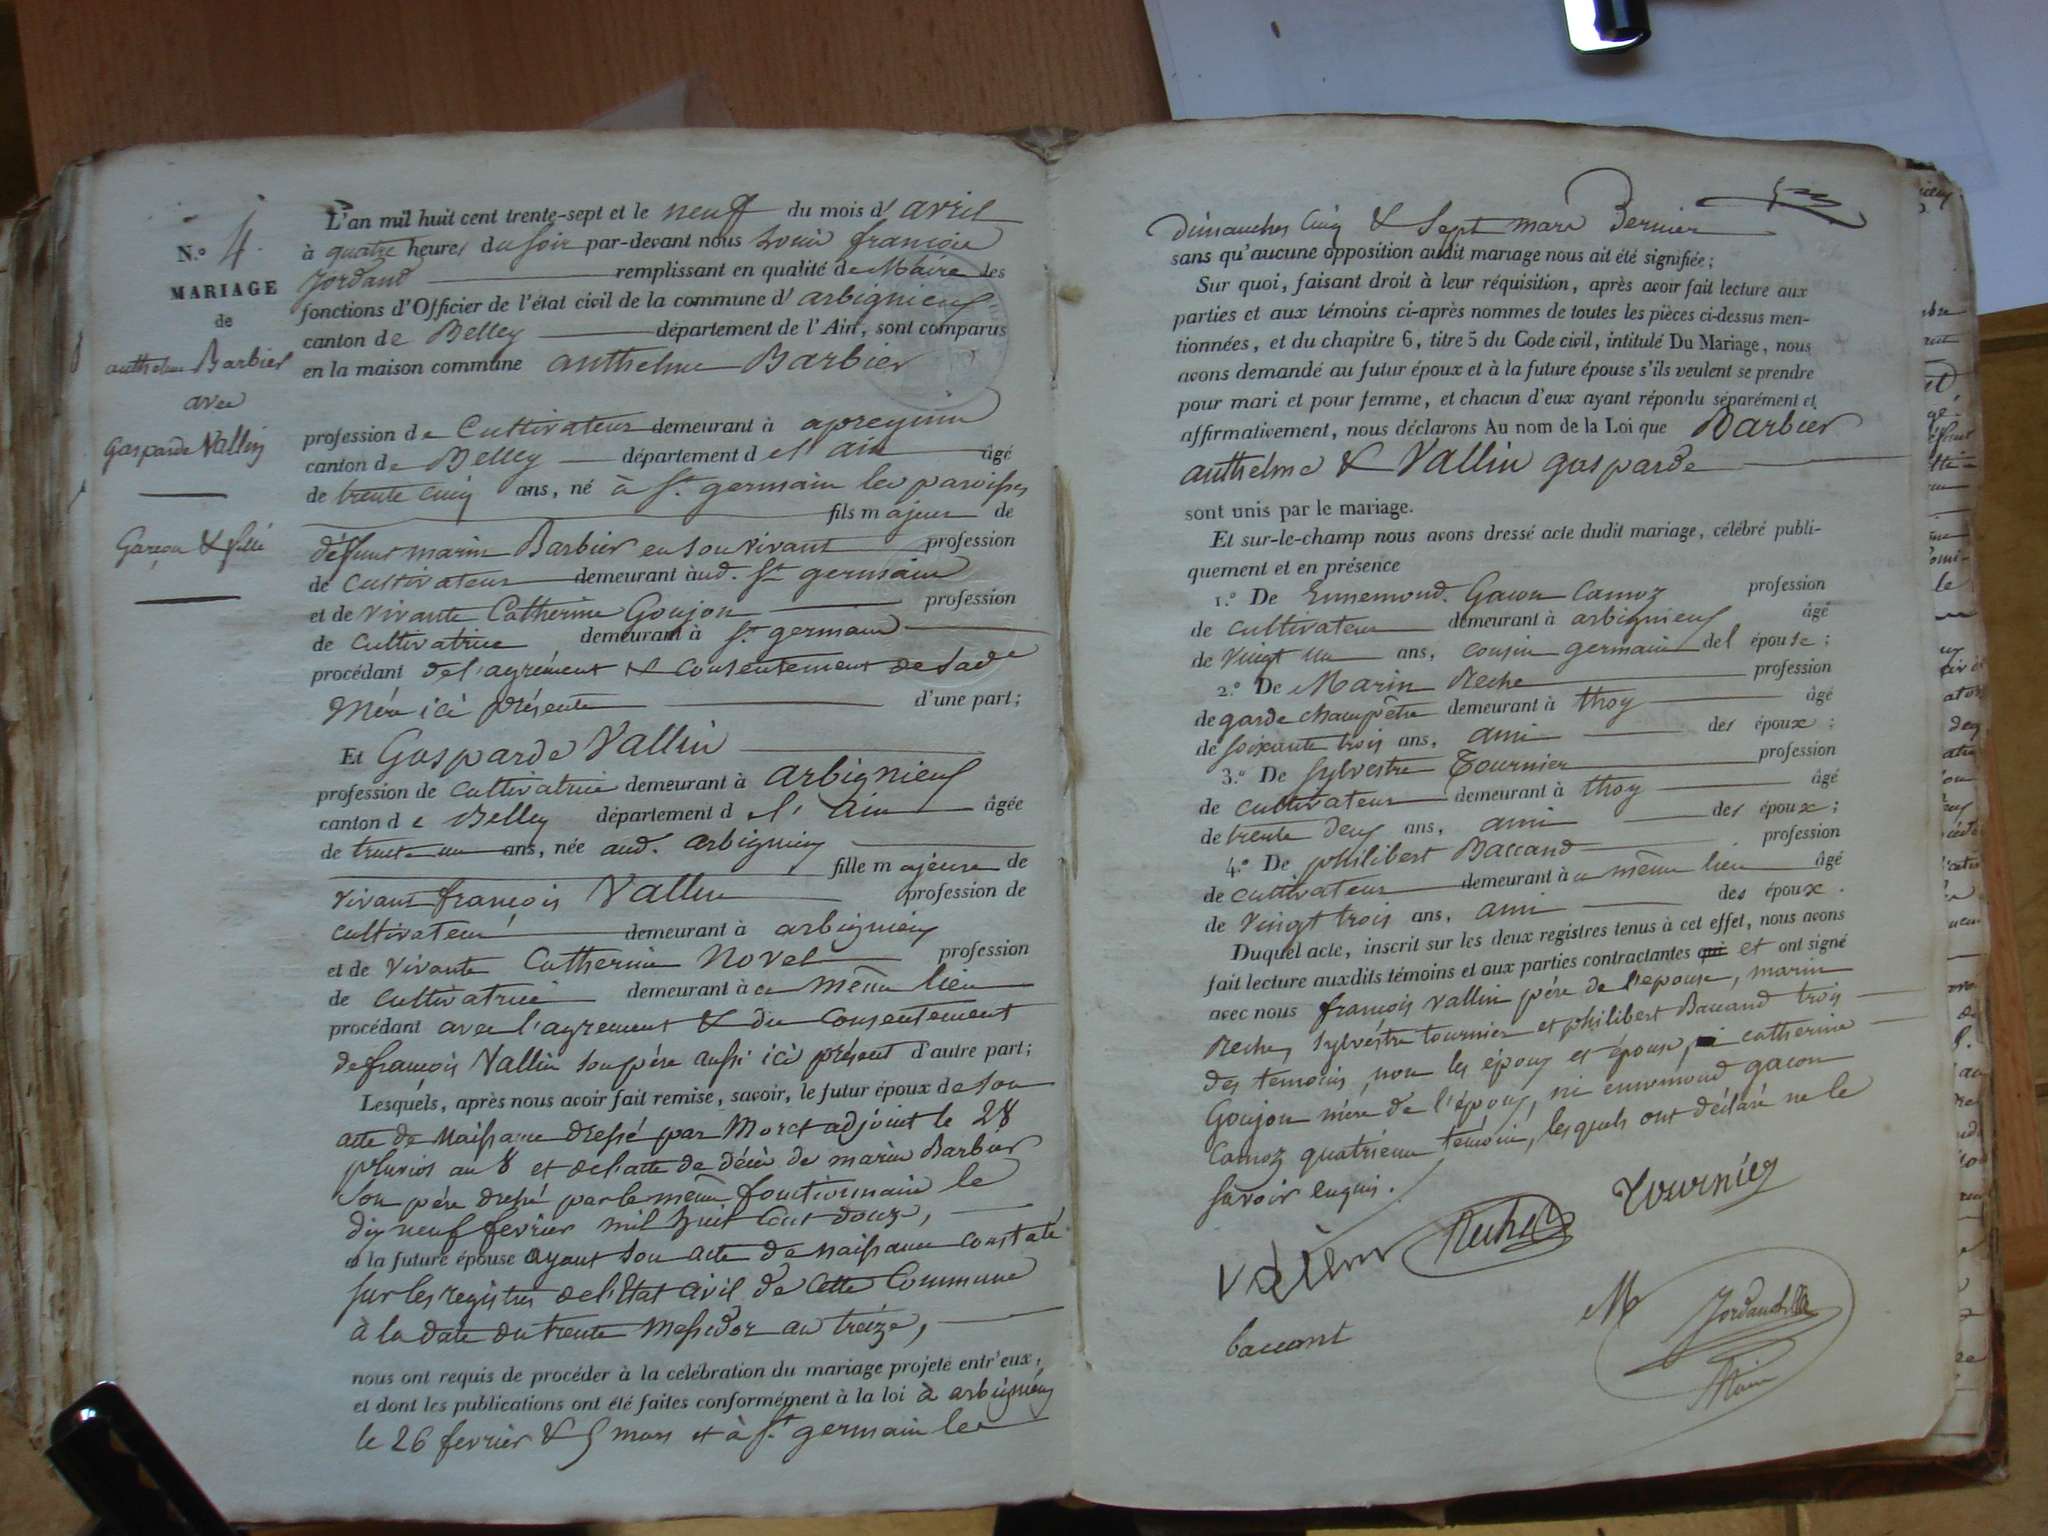 N.o 4.
MARIAGE
de
anthelme Barbier
avec
Gasparde Vallin
Garçon & fille
L'an mil huit cent trente-sept et le neuf du mois d'avril
à quatre heures du soir par-devant nous Louis françois
Jordand remplissant en qualité de Maire les
fonctions d'Officier de l'état civil de la commune d'arbignieu
canton de Belley département de l'Ain, sont comparus
en la maison commune anthelme Barbier
profession de Cultivateur demeurant à
canton de Belley département de l'ain âgé
de trente cinq ans, né à St germain les paroisses
fils majeur de
défunt marin Barbier en son vivant profession
de Cultivateur demeurant aud. St germain
et de vivante Catherine Goujon profession
de Cultivatrice demeurant à St germain
procédant de l'agrément & consentement de sade
Mère ici présente d'une part;
Et Gasparde Vallin
profession de cultivatrice demeurant à arbignieu
canton de Belley département de l'Ain âgée
de trente un ans, née aud. arbignieu
fille majeure de
vivant françois Vallin profession de
cultivateur demeurant à arbignieu
et de vivante Catherine Novel profession
de cultivatrice demeurant à ce même lieu
procédant avec l'agrement & du consentement
de françois Vallin son père aussi ici présent d'autre part;
Lesquels, après nous avoir fait remise, savoir, le futur époux de son
acte de Naissance dressé par Moret adjoint le 28
pluvios an 8 et de l'acte de décès de marin Barbier
son père dressé par le même fonctionnaire le
dix neuf fevrier mil huit cent douze,
et la future épouse ayant son acte de naissance constaté
sur les registres de l'Etat civil de cette Commune
à la date du trente Messidor an treize,
nous ont requis de procéder à la célébration du mariage projeté entr'eux,
et dont les publications ont été faites conformément à la loi à arbignieu
le 26 fevrier & 5 mars et à St germain les
dimanches cinq & Sept mars Dernier
sans qu'aucune opposition audit mariage nous ait été signifiée;
Sur quoi, faisant droit à leur réquisition, après avoir fait lecture aux
parties et aux témoins ci-après nommes de toutes les pièces ci-dessus men-
tionnées, et du chapitre 6, titre 5 du Code civil, intitulé Du Mariage, nous
avons demandé au futur époux et à la future épouse s'ils veulent se prendre
pour mari et pour femme, et chacun d'eux ayant répondu séparément et
affirmativement, nous déclarons Au nom de la Loi que Barbier
anthelme & Vallin gasparde
sont unis par le mariage.
Et sur-le-champ nous avons dressé acte dudit mariage, célébré publi-
quement et en présence
1.o De Ennemond Gacon Camoz profession
de cultivateur demeurant à arbignieu âgé
de vingt un ans, cousin germain de l'épouse;
2.o De Marin Reche profession
de garde champêtre demeurant à thoy âgé
de soixante trois ans, ami des époux;
3.o De Sylvestre Tournier profession
de cultivateur demeurant à thoy âgé
de trente deux ans, ami des époux;
4.o De philibert Baccand profession
de cultivateur demeurant à ce même lieu âgé
de vingt trois ans, ami des époux.
Duquel acte, inscrit sur les deux registres tenus à cet effet, nous avons
fait lecture auxdits témoins et aux parties contractantes qui et ont signé
avec nous françois vallin père de l'epouse, marin
Reche, Sylvestre tournier et philibert Baccand trois
des temoins, non les époux et épouse, ni catherine
Goujon mère de l'époux, ni ennemond gacon
Camoz quatrième témoin, lesquels ont déclaré ne le
savoir enquis.
Reche
tournier
baccant
M
Jordand
Maire